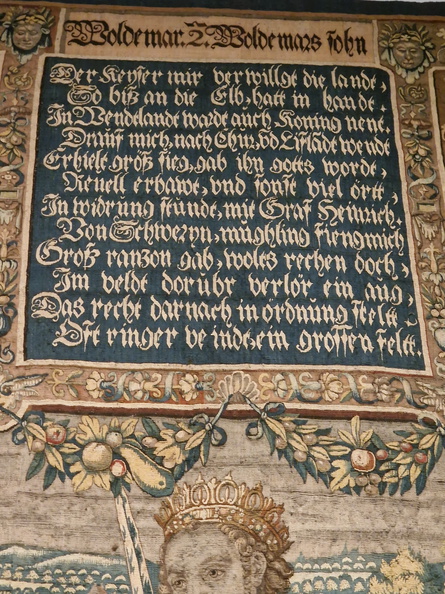 Woldemar. 2. Woldemars sohn
Der Keyser mir verwillgt die landt,
So biß an die Elb, hatt in handt,
In Wendelandt wardt auch Koning nent,
Drauf mich, nach Chur, vd Lifladt wendt
Erhielt groß sieg, gab ihn gotts wordt,
Revell erbawt, vnd sonst viel ortt,
In widrung stunde, mit Graf Heinrich,
Von Schweryn, mughling fiengmich
Groß ranzon gab, woltes rechen doch,
Im veldt dorubr verlor ein aug,
Das recht darnach in ordnung steltt,
Oft ringer veindt, ein grossen feltt.